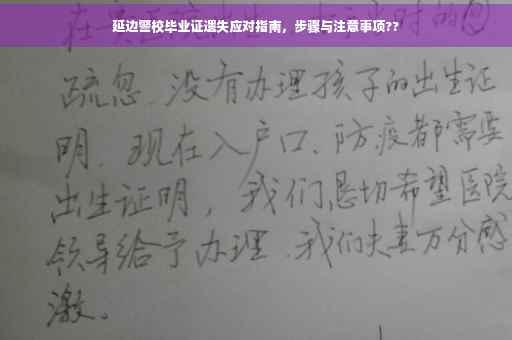 延边警校毕业证遗失应对指南，步骤与注意事项??
疏忽.没有办理孩子的出生证
明.现在入户口、防疫都需要
出生证明，我们恳切希望医院
领导给予办理.我们夫妻万分感
激。